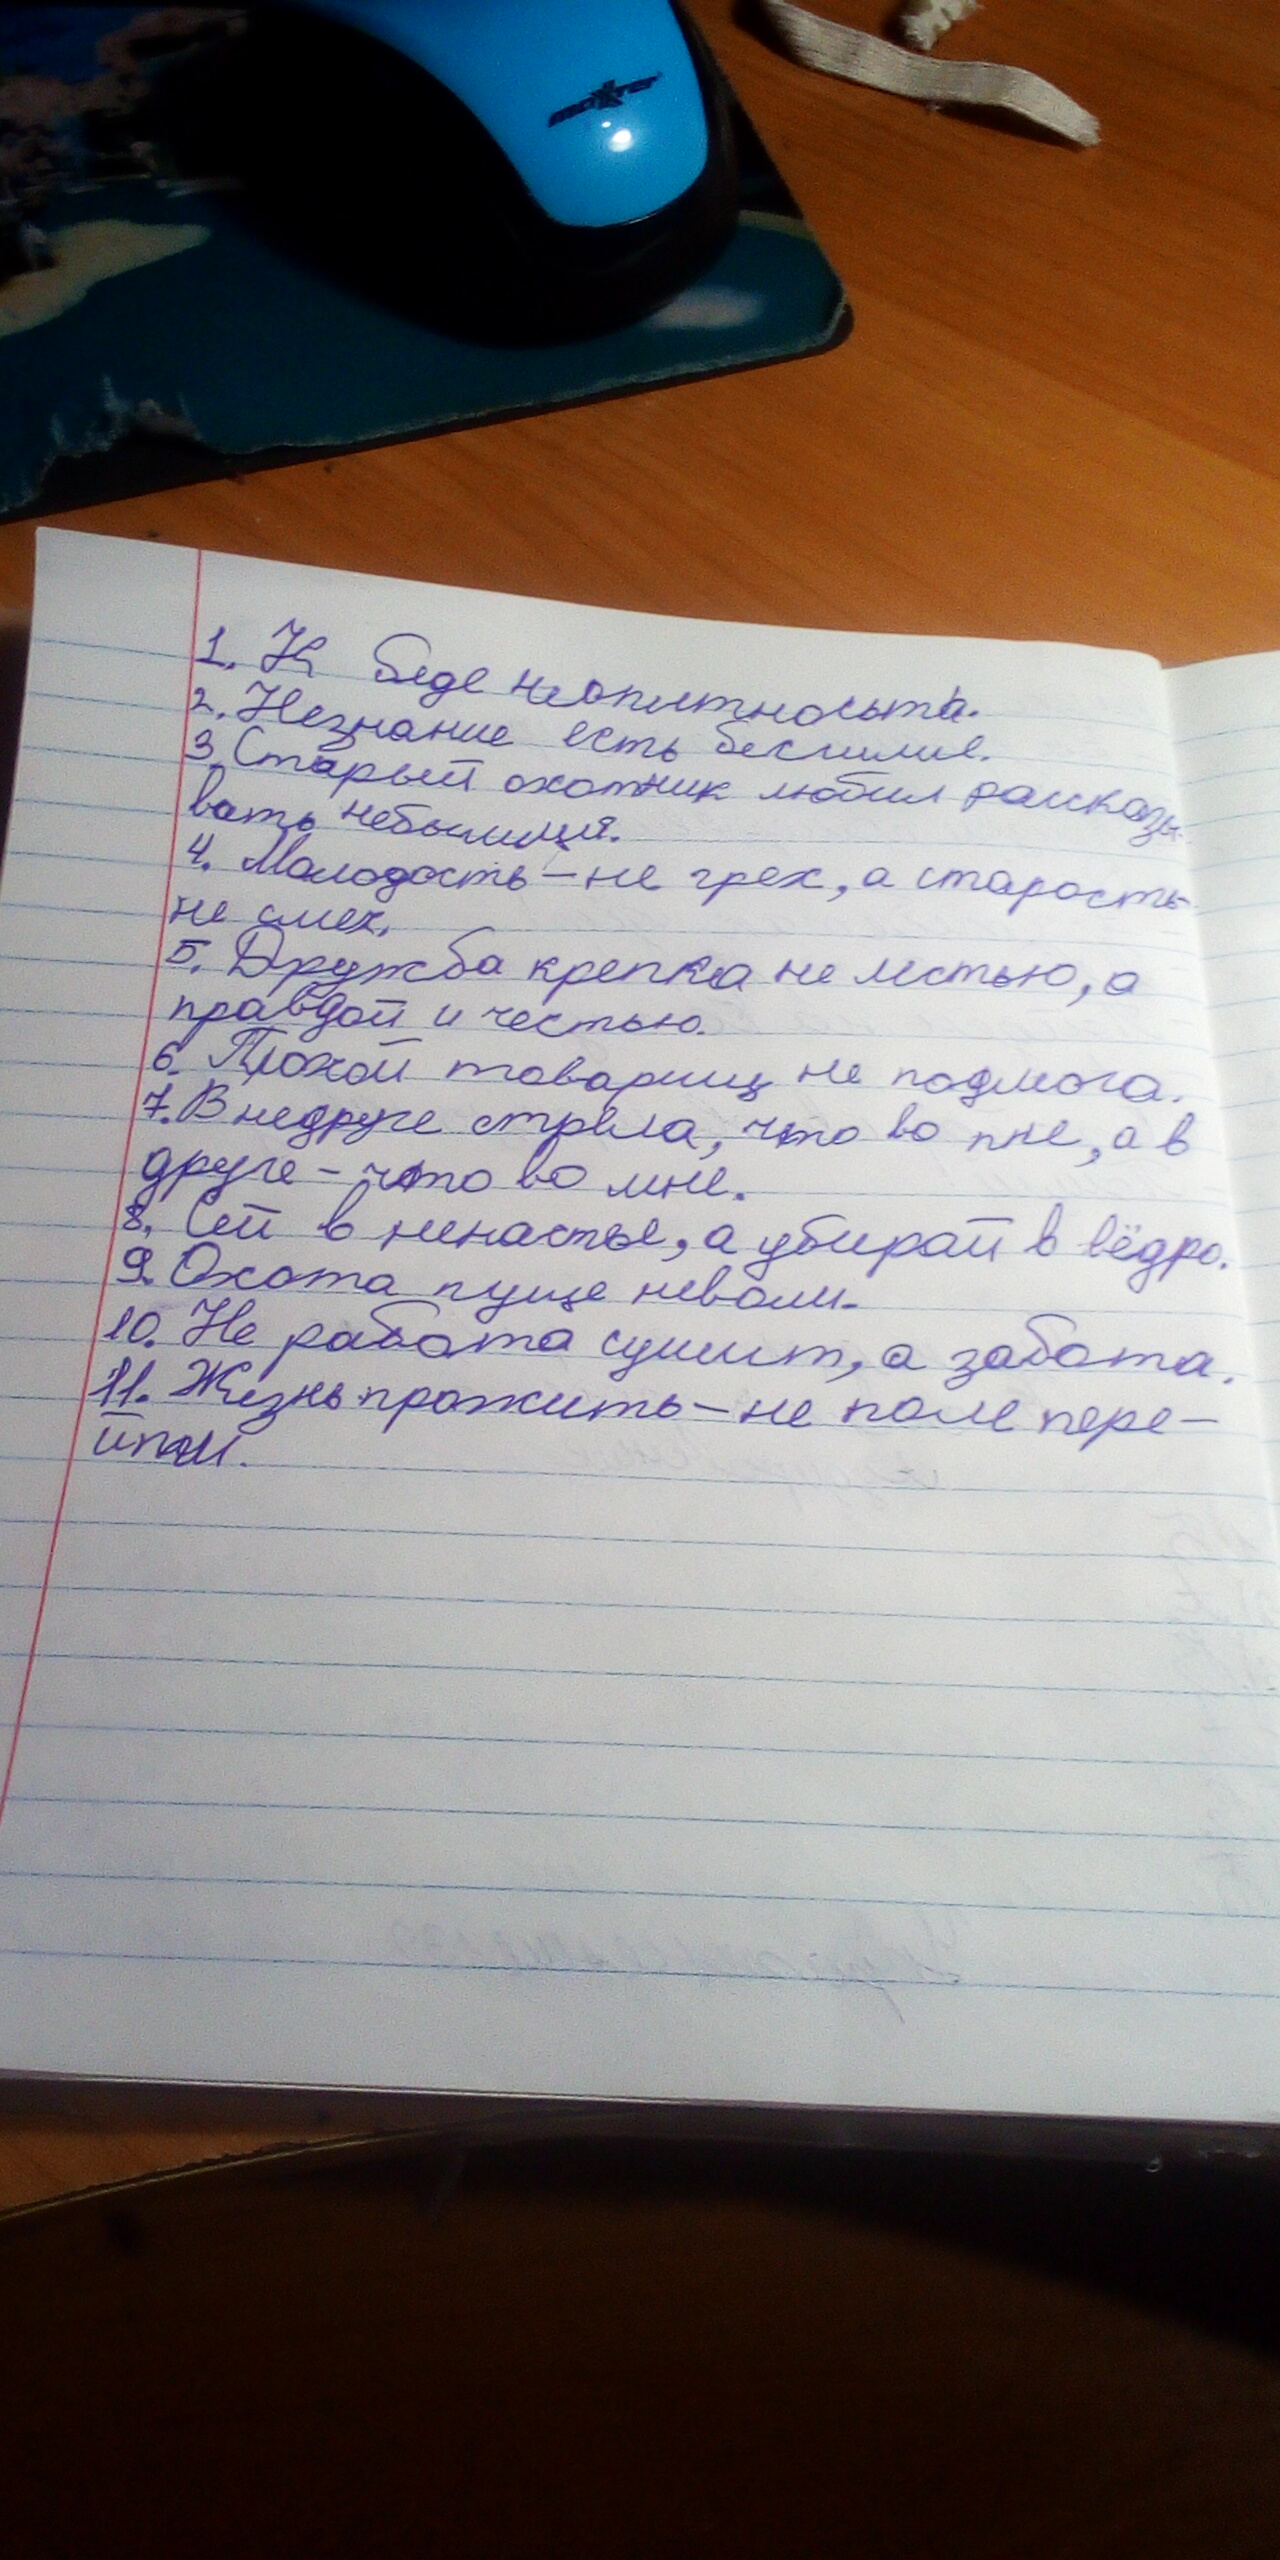 maxxter
1. К беде неопытность.
2. Незнание есть бессилие.
3. Старый охотник любил рассказы-
вать небылицы.
4. Молодость - не грех, а старость
не смех.
5. Дружба крепка не лестью, а
правдой и честью.
6. Плохой товарищ не подмога.
7. В недруге стрела, что во пне, а в
друге - что во мне.
8. Сей в ненастье, а убирай в вёдро.
9. Охота пуще неволи.
10. Не работа сушит, а забота.
11. Жизнь прожить - не поле пере-
йти.